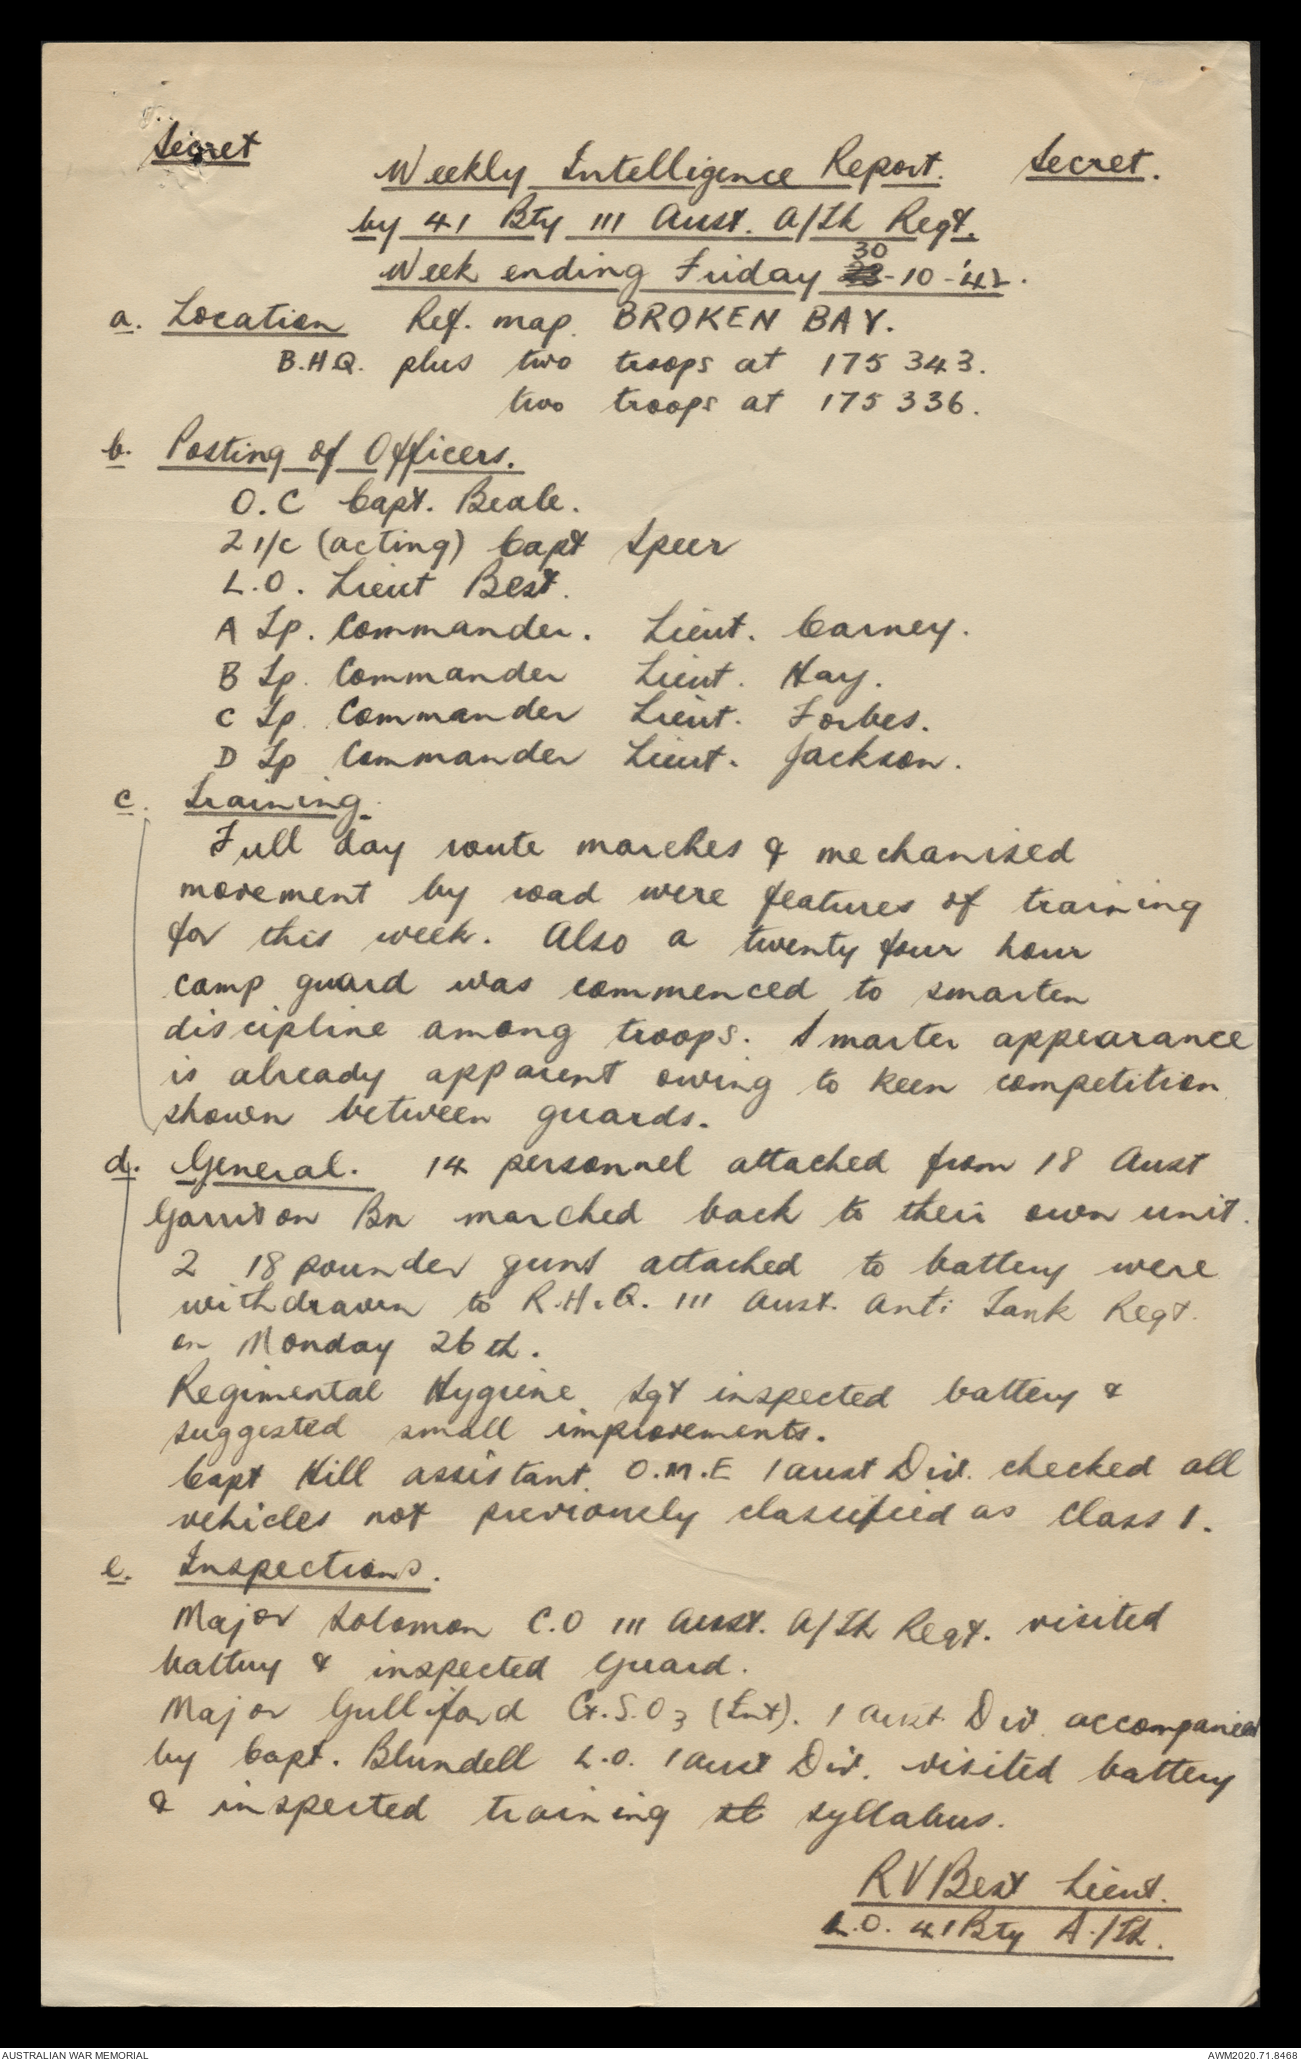 Secret
Weekly Intelligence Report. Secret.
by 41 Bty 111 Aust. A/Tk Regt.
Week ending Friday 30-10-'42.
a. Location Ref. map. BROKEN BAY.
B.H.Q. plus two troops at 175 343.
two troops at 175 336.
b. Posting of Officers.
O.C Capt. Beale.
2 i/c (acting) Capt Speer
L.O. Lieut Best.
A Tp. Commander. Lieut. Carney.
B Tp. Commander Lieut. Hay.
C Tp. Commander Lieut. Forbes.
D Tp Commander Lieut. Jackson.
c. Training.
Full day route marches & mechanised
movement by road were features of training
for this week. Also a twenty four hour
camp guard was commenced to smarten
discipline among troops. Smarter appearance
is already apparent owing to keen competition
shown between guards.
d. General. 14 personnel attached from 18 Aust
Garrison Bn marched back to their own unit.
2 18 pounder guns attached to battery were
withdrawn to R.H.Q. 111 Aust. Anti Tank Regt.
on Monday 26th.
Regimental Hygiene Sgt inspected battery &
suggested small improvements.
Capt Hill assistant O.M.E 1 Aust Div. checked all
vehicles not previously classified as Class 1.
e. Inspections.
Major Solomon C.O 111 Aust. A/Tk Regt. visited
battery & inspected Guard.
Major Gulliford G.S.O3 (Int). 1 Aust. Div accompanied
by Capt. Blundell L.O. 1 Aust Div. visited battery
& inspected training st syllabus.
RVBest Lieut.
L.O. 41 Bty A./Tk.
AUSTRALIAN WAR MEMORIAL AWM2020.71.8468